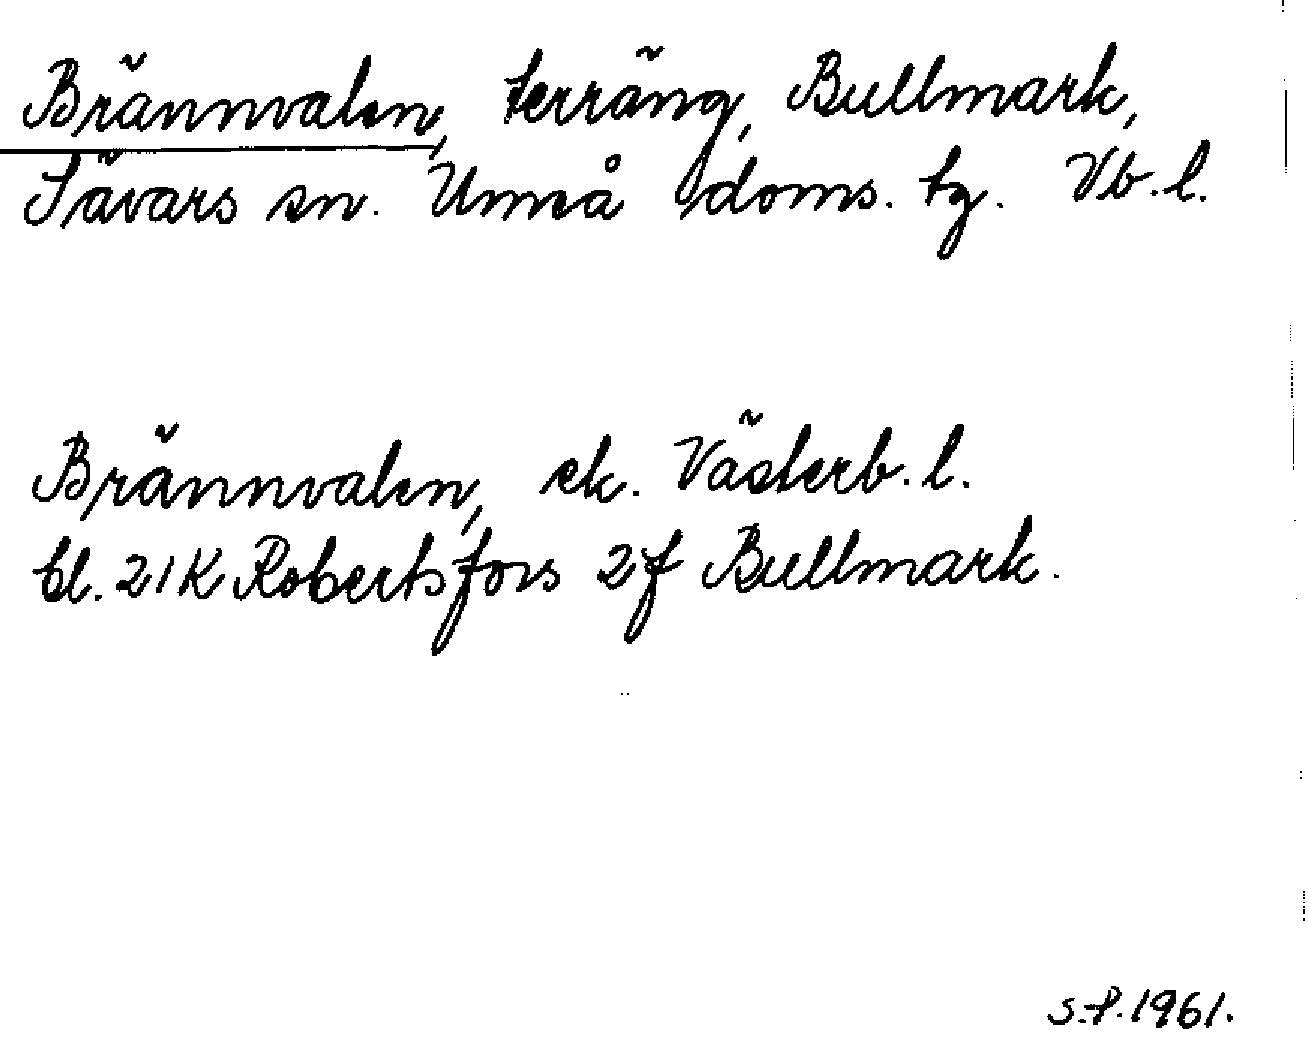 Brännvalen, terräng, Bullmark,
Sävars sn. Umeå doms. tg. Vb.l.
Brännvalen, ek. Västerb.l.
bl. 21K Robertsfors 2f Bullmark.
S.P. 1961.